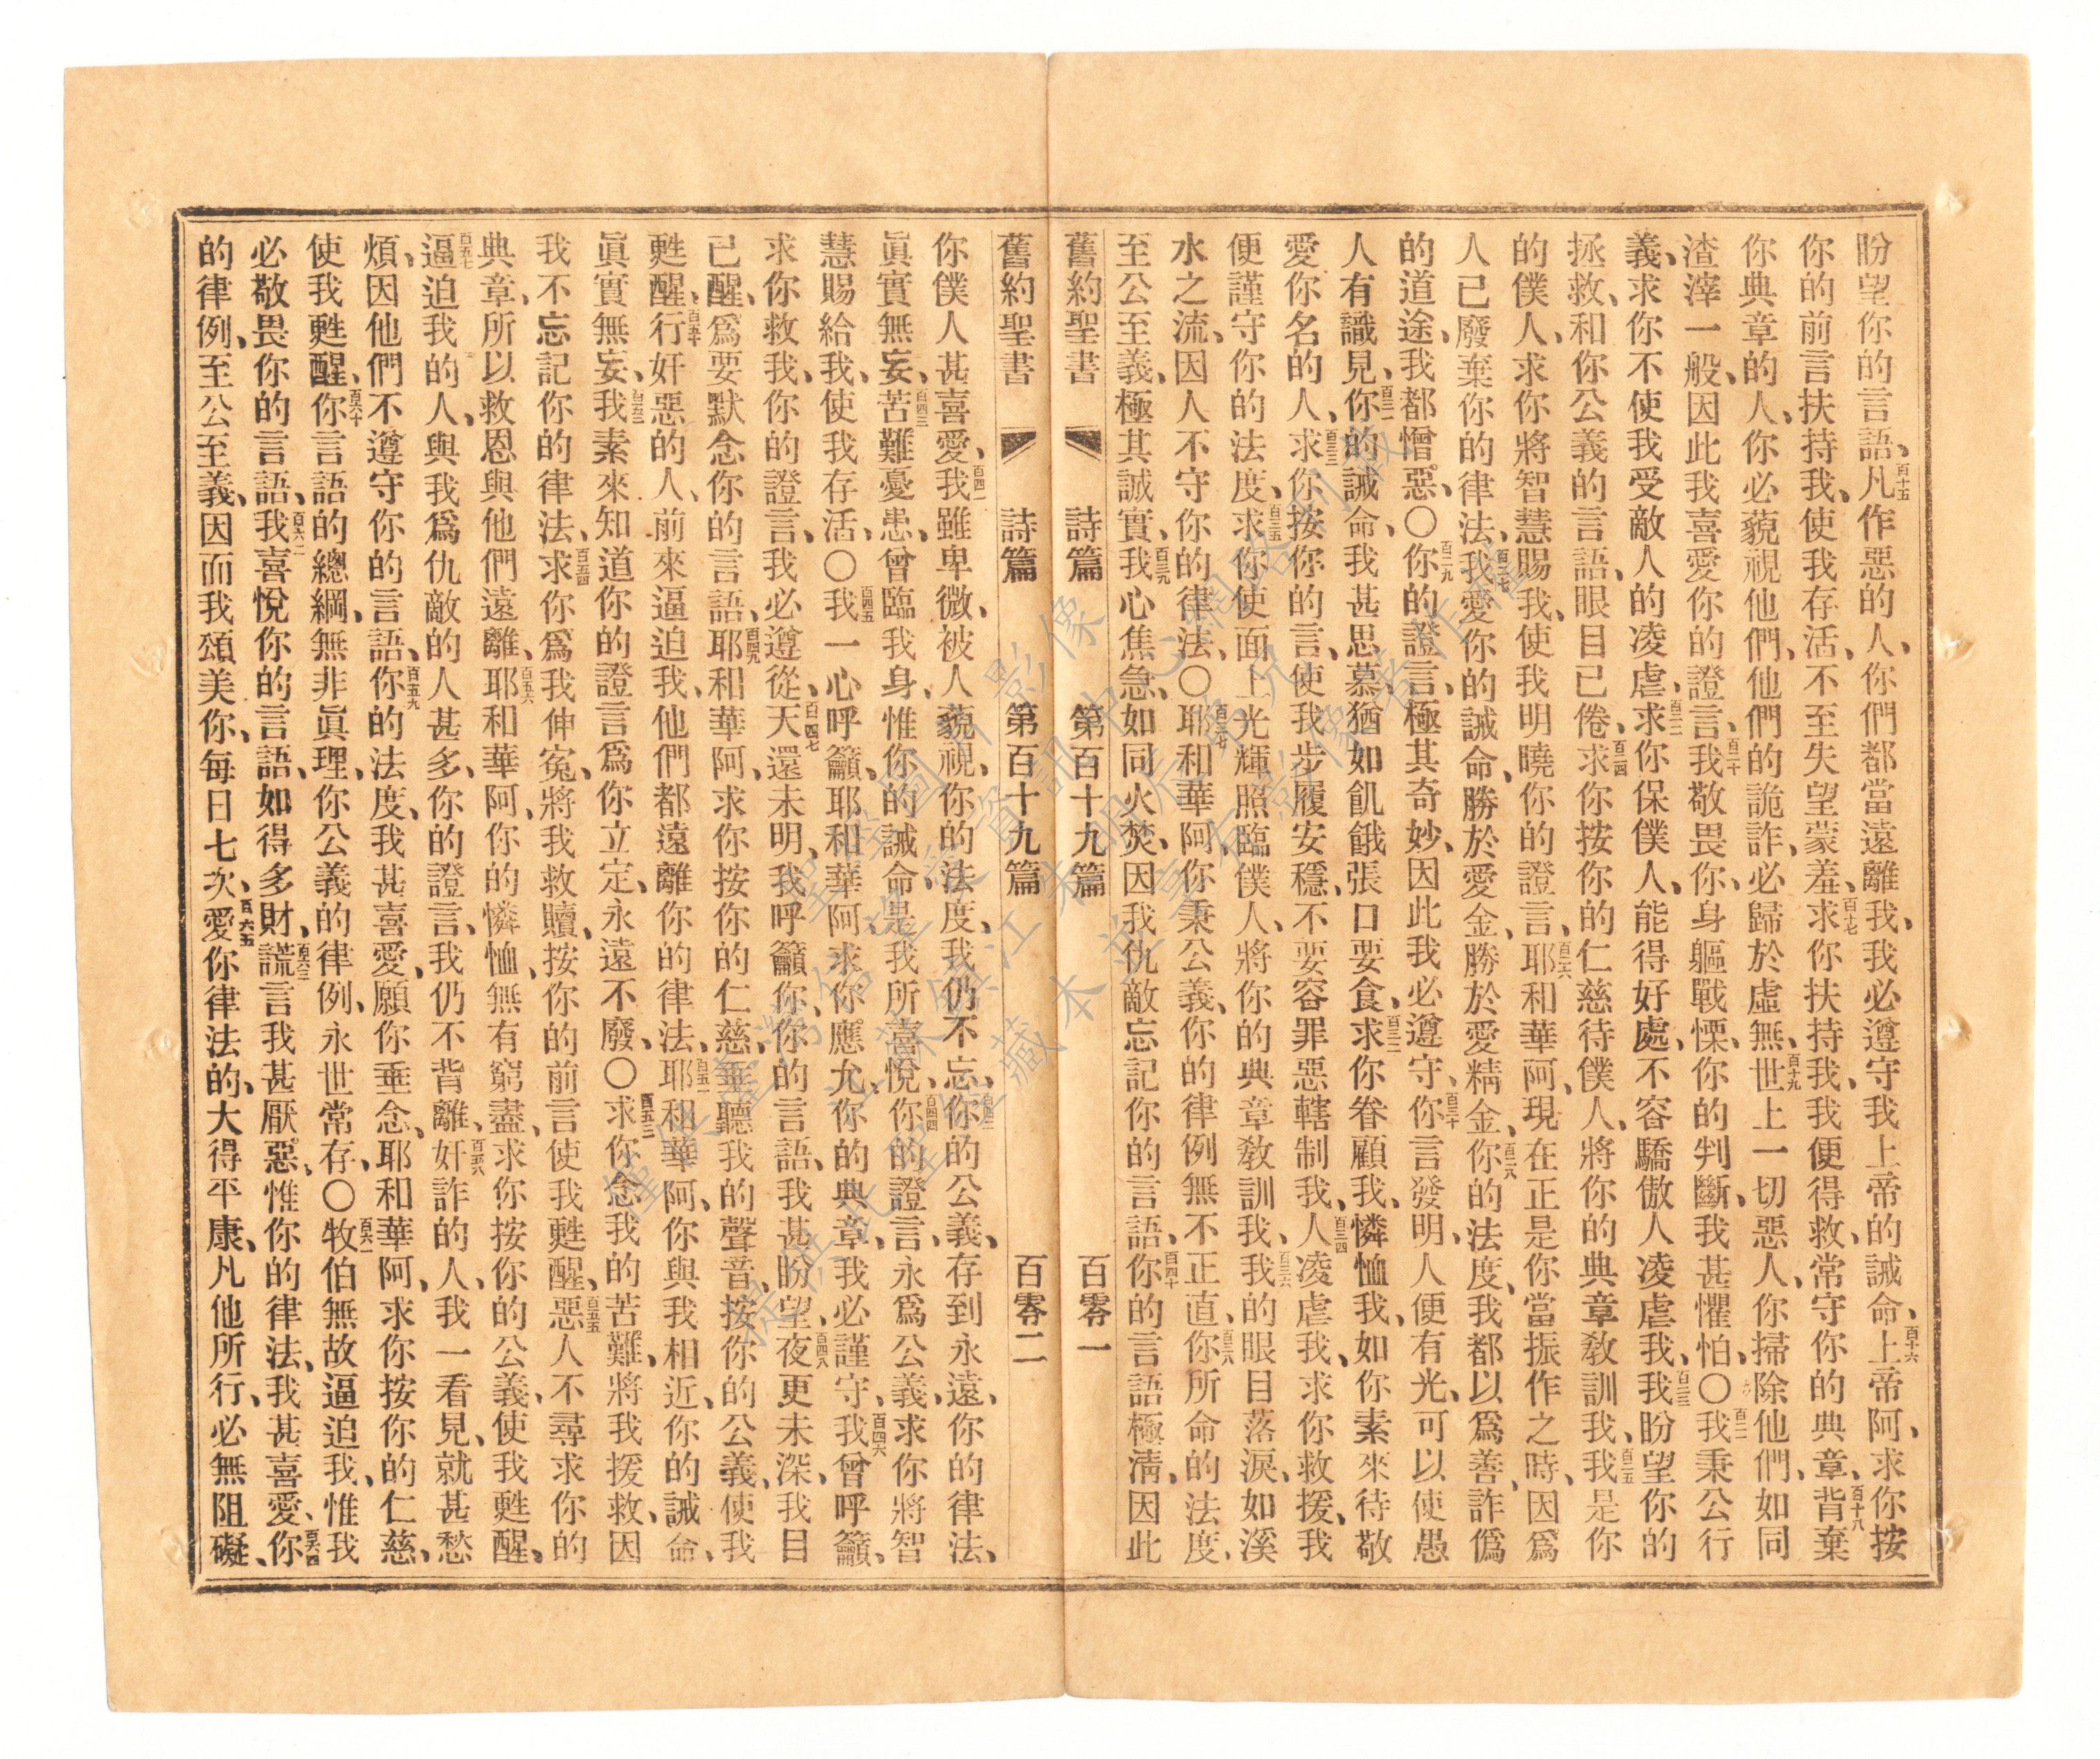 盼望你的言語、百十五凡作惡的人、你們都當遠離我、我必遵守我上帝的誡命、百十六上帝阿、求你按
你的前言扶持我、使我存活、不至失望蒙羞、百十七求你扶持我、我便得救、常守你的典章、百十八背棄
你典章的人、你必藐視他們、他們的詭詐、必歸於虛無、百十九世上一切惡人、你掃除他們、如同
渣滓一般、因此我喜愛你的證言、百二十我敬畏你、身軀戰慄、你的判斷、我甚懼怕、〇百二一我秉公行
義、求你不使我受敵人的凌虐、百二二求你保僕人、能得好處、不容驕傲人凌虐我、百二三我盼望你的
拯救、和你公義的言語、眼目已倦、百二四求你按你的仁慈待僕人、將你的典章教訓我、百二五我是你
的僕人、求你將智慧賜我、使我明曉你的證言、百二六耶和華阿、現在正是你當振作之時、因爲
人已廢棄你的律法、百二七我愛你的誡命、勝於愛金、勝於愛精金、百二八你的法度、我都以爲善、詐僞
的道途、我都憎惡、〇百二九你的證言、極其奇妙、因此我必遵守、百三十你言發明、人便有光、可以使愚
人有識見、百三一你的誡命、我甚思慕、猶如飢餓張口要食、百三二求你眷顧我、憐恤我、如你素來待敬
愛你名的人、百三三求你按你的言、使我步履安穩、不要容罪惡轄制我、百三四人凌虐我、求你救援、我
便謹守你的法度、百三五求你使面上光輝照臨僕人、將你的典章敎訓我、百三六我的眼目落淚、如溪
水之流、因人不守你的律法、〇百三七耶和華阿、你秉公義、你的律例無不正直、百三八你所命的法度、
至公至義、極其誠實、百三九我心焦急、如同火焚、因我仇敵忘記你的言語、百四十你的言語極淸、因此
舊約聖書 詩篇 第百十九篇 百零一
舊約聖書 詩篇 第百十九篇 百零二
你僕人甚喜愛、百四一我雖卑微、被人藐視、你的法度、我仍不忘、百四二你的公義、存到永遠、你的律法、
眞實無妄、百四三苦難憂患、曾臨我身、惟你的誡命是我所喜悅、百四四你的證言、永爲公義、求你將智
慧賜給我、使我存活、〇百四五我一心呼籲、耶和華阿求你應允、你的典章、我必謹守、百四六我曾呼籲、
求你救我、你的證言、我必遵從、百四七天還未明、我呼籲你、你的言語、我甚盼望、百四八夜更未深、我目
已醒、爲要默念你的言語、百四九耶和華阿、求你按你的仁慈、垂聽我的聲音、按你的公義、使我
甦醒、百五十行奸惡的人、前來逼迫我、他們都遠離你的律法、百五一耶和華阿、你與我相近、你的誡命、
眞實無妄、百五二我素來知道你的證言、爲你立定、永遠不廢、〇百五三求你念我的苦難、將我援救、因
我不忘記你的律法、百五四求你爲我伸寃、將我救贖、按你的前言使我甦醒、百五五惡人不尋求你的
典章、所以救恩與他們遠離、百五六耶和華阿、你的憐恤、無有窮盡、求你按你的公義、使我甦醒、
百五七逼迫我的人、與我爲仇敵的人甚多、你的證言、我仍不背離、百五八奸詐的人、我一看見、就甚愁
煩、因他們不遵守你的言語、百五九你的法度、我甚喜愛、願你垂念、耶和華阿、求你按你的仁慈、
使我甦醒、百六十你言語的總綱、無非眞理、你公義的律例、永世常存、〇百六一牧伯無故逼迫我、惟我
必敬畏你的言語、百六二我喜悅你的言語、如得多財、百六三謊言我甚厭惡、惟你的律法、我甚喜愛、百六四你
的律例、至公至義、因而我頌美你、每日七次、百六五愛你律法的、大得平康、凡他所行、必無阻礙、